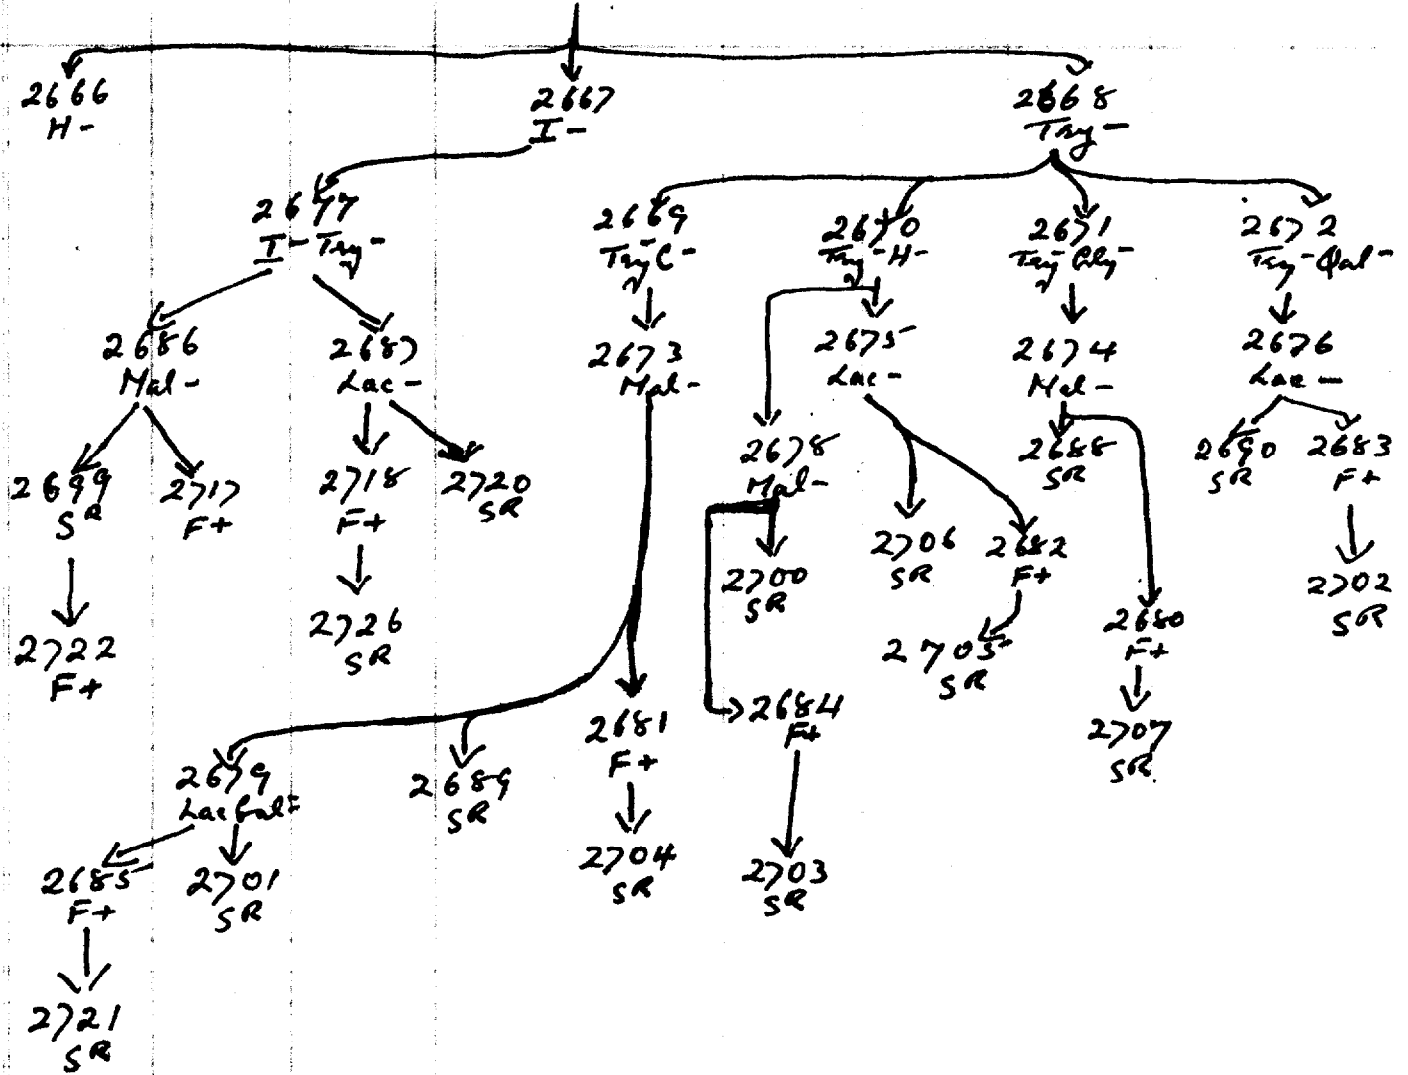 2666
H-
2667
I-
2668
Try-
2677
I-Try-
2669
Try-C-
2670
Try-H-
2671
Try-Gly-
2672
Try-Gal-
2686
Mal-
2687
Lac-
2673
Mal-
2675
Lac-
2674
Mal-
2676
Lac-
2699
SR
2717
F+
2718
F+
2720
SR
2678
Mal-
2688
SR
2690
SR
2683
F+
2700
SR
2706
SR
2682
F+
2702
SR
2722
F+
2726
SR
2705
SR
2680
F+
2681
F+
2684
F+
2707
SR
2679
Lac-Gal-
2689
SR
2704
SR
2703
SR
2685
F+
2701
SR
2721
SR